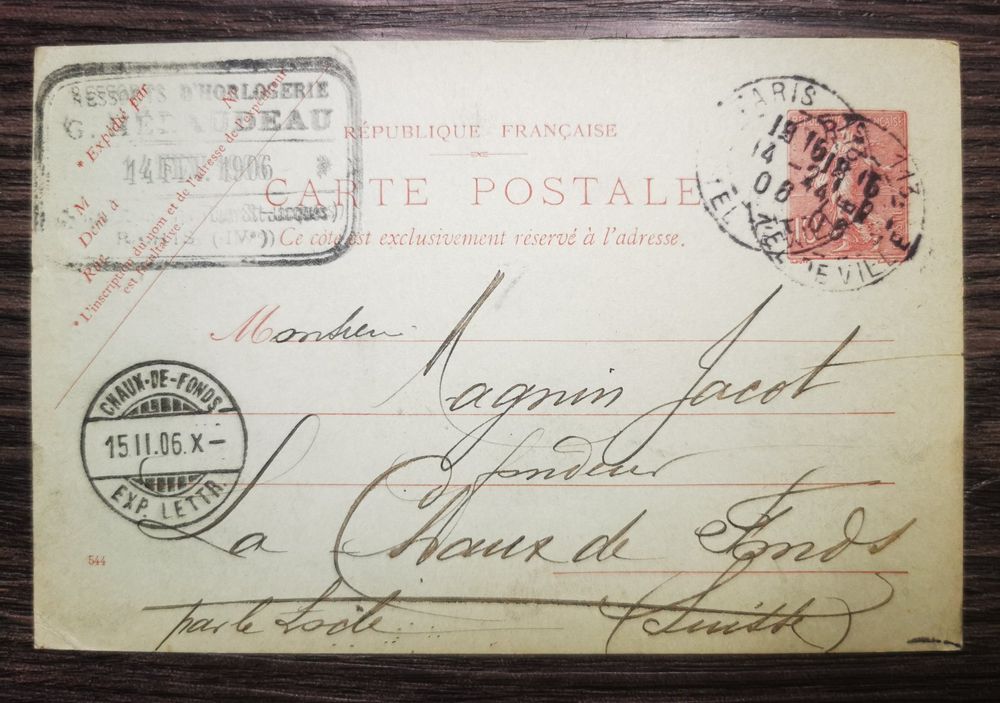 RESSORTS D'HORLOGERIE
14 FEV 1906
RÉPUBLIQUE FRANÇAISE
CARTE POSTALE
Ce côté est exclusivement réservé à l'adresse.
* Expédié par
M
Demt à
Rue
N°
* L'inscription du nom et de l'adresse de l'expéditeur
est facultative
PARIS
14 - 2
06
CHAUX-DE-FONDS
15.II.06.X-
EXP. LETTR.
Monsieur
Magnin Jacot
fondeur
La Chaux de Fonds
par le Locle
Suisse
544